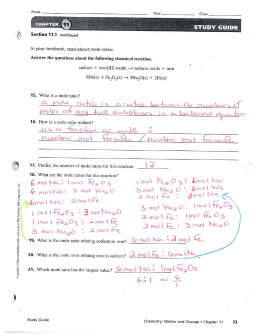 Name Date Class
CHAPTER 11 STUDY GUIDE
Section 11.1 continued
In your textbook, read about mole ratios.
Answer the questions about the following chemical reaction.
sodium + iron(III) oxide → sodium oxide + iron
6Na(s) + Fe2O3(s) → 3Na2O(s) + 2Fe(s)
15. What is a mole ratio?
a mole ratio is a ratio between the numbers of
moles of any two substances in a balanced equation
16. How is a mole ratio written?
as a fraction or ratio :
number mol formula / number mol formula
17. Predict the number of mole ratios for this reaction. 12
18. What are the mole ratios for this reaction?
6 mol Na : 1 mol Fe2O3 1 mol Fe2O3 : 6 mol Na
6 mol Na : 3 mol Na2O 3 mol Na2O : 6 mol Na
6 mol Na : 2 mol Fe 2 mol Fe : 6 mol Na
1 mol Fe2O3 : 3 mol Na2O 3 mol Na2O : 1 mol Fe2O3
1 mol Fe2O3 : 2 mol Fe 2 mol Fe : 1 mol Fe2O3
3 mol Na2O : 2 mol Fe 2 mol Fe : 3 mol Na2O
19. What is the mole ratio relating sodium to iron? 6 mol Na : 2 mol Fe
20. What is the mole ratio relating iron to sodium? 2 mol Fe : 6 mol Na
21. Which mole ratio has the largest value? 6 mol Na : 1 mol Fe2O3
6:1 or 6/1
Study Guide Chemistry: Matter and Change • Chapter 11 73